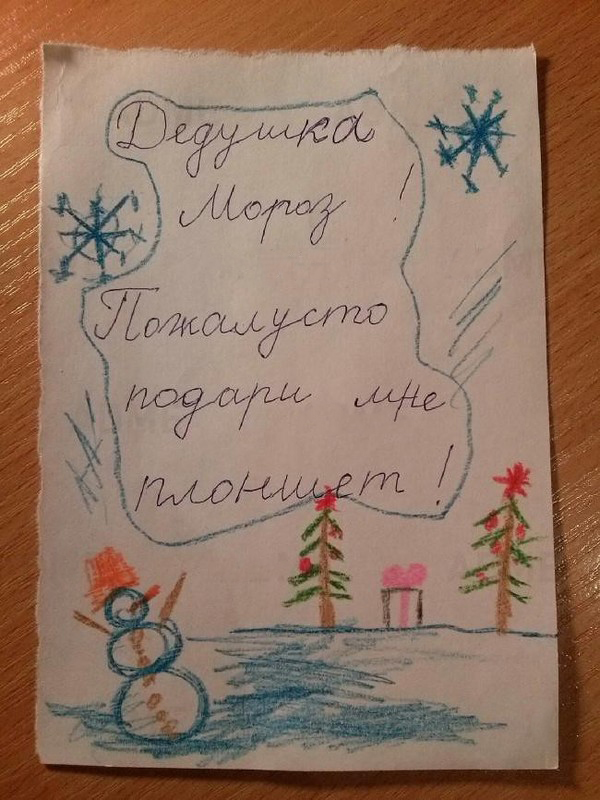 Дедушка
Мороз !
Пожалусто
подари мне
плоншет !